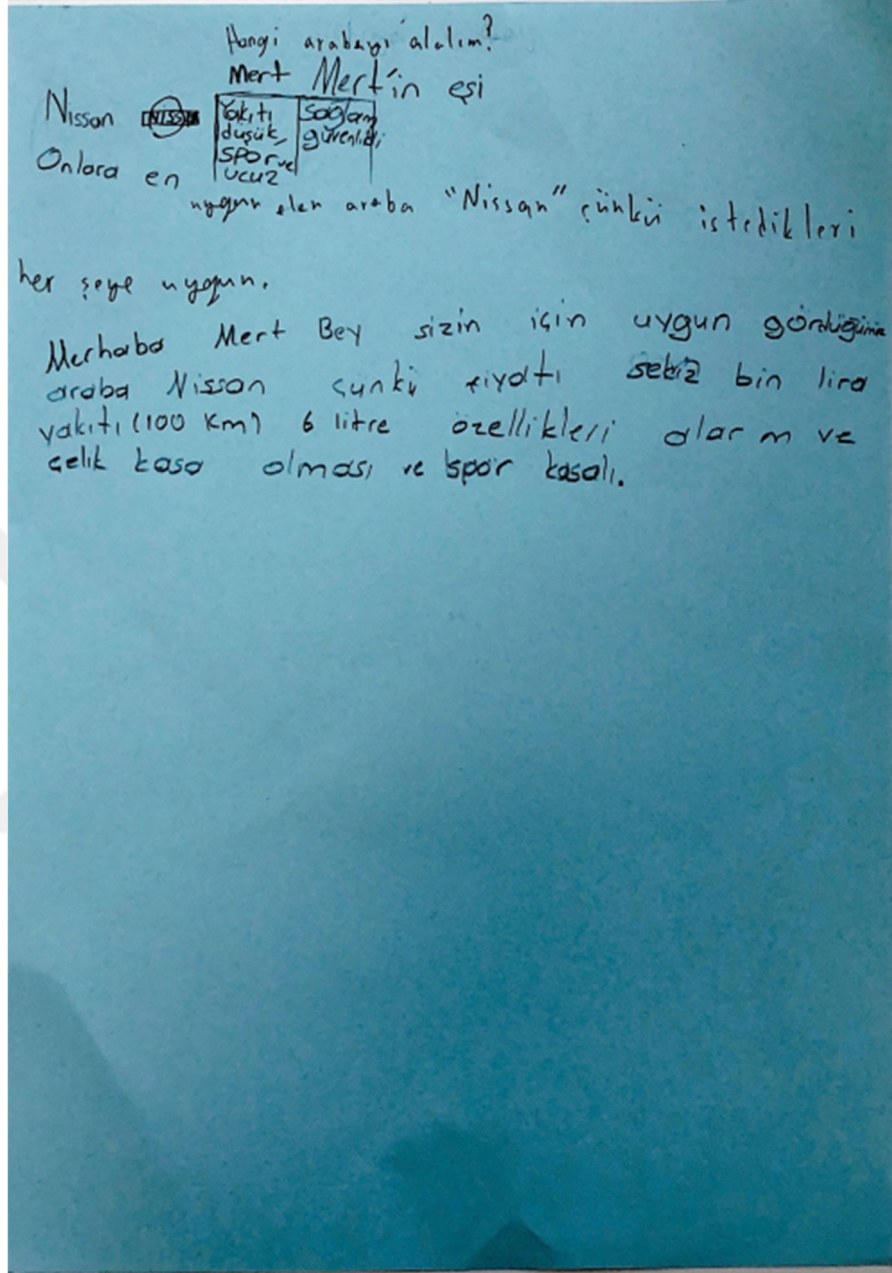 Hangi arabayı alalım?
Mert Mert'in eşi
Nissan NISSAN
Yakıtı düşük, spor ve ucuz
Sağlam güvenlikli
Onlara en
uygun olan araba "Nissan" çünkü istedikleri
her şeye uygun.
Merhaba Mert Bey sizin için uygun gördüğümüz
araba Nissan çünkü fiyatı sekiz bin lira
yakıtı (100 km) 6 litre özellikleri alarm ve
çelik kasa olması ve spor kasalı.